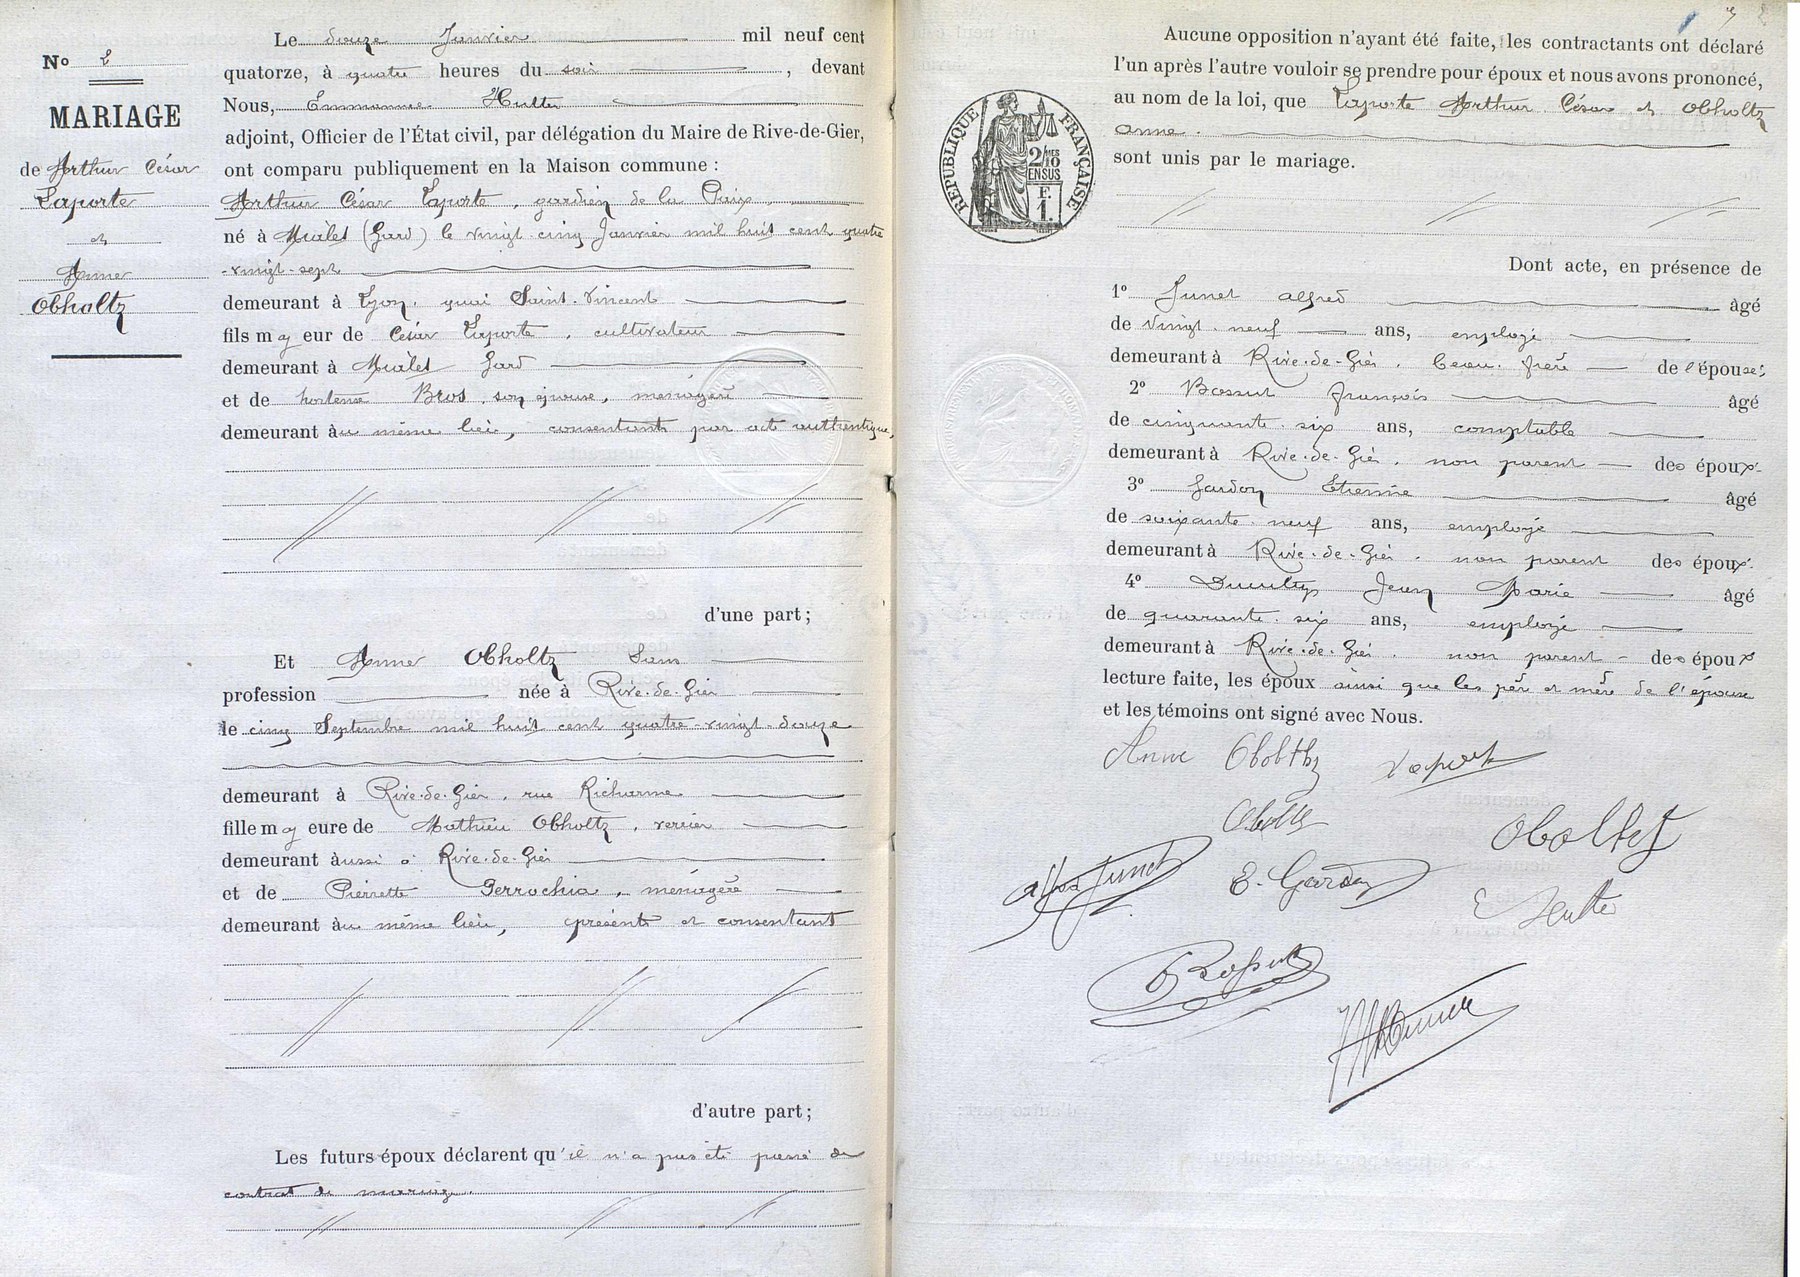 No 2
MARIAGE
de Arthur César
Laporte
et
Anne
Obholtz
Le douze Janvier mil neuf cent
quatorze, à quatre heures du soir, devant
Nous, Emmanuel Hutter
adjoint, Officier de l'État civil, par délégation du Maire de Rive-de-Gier,
ont comparu publiquement en la Maison commune :
Arthur César Laporte, gardien de la Paix,
né à Mialet (Gard) le vingt cinq Janvier mil huit cent quatre
-vingt-sept
demeurant à Lyon, quai Saint-Vincent
fils majeur de César Laporte, cultivateur
demeurant à Mialet Gard
et de hortense Bros, son épouse, menagère
demeurant au même lieu, consentants par acte authentique,
d'une part ;
Et Anne Obholtz Sans
profession née à Rive-de-Gier
le cinq Septembre mil huit cent quatre-vingt-douze
demeurant à Rive-de-Gier, rue Richarme
fille majeure de Mathieu Obholtz, verrier
demeurant aussi à Rive-de-Gier
et de Pierrette Perrochia, ménagère
demeurant au même lieu, présents et consentant
d'autre part ;
Les futurs époux déclarent qu'il n'a pas été passé de
contrat de mariage.
Aucune opposition n'ayant été faite, les contractants ont déclaré
l'un après l'autre vouloir se prendre pour époux et nous avons prononcé,
au nom de la loi, que Laporte Arthur César et Obholtz
Anne.
sont unis par le mariage.
RÉPUBLIQUE FRANÇAISE
2/10MES
EN SUS
F.
1.
Dont acte, en présence de
1° Junet Alfred âgé
de vingt-neuf ans, employé
demeurant à Rive-de-Gier, beau-frère de l'épouse;
2° Bossut François âgé
de cinquante-six ans, comptable
demeurant à Rive-de-Gier, non parent des époux
3° Gardon Etienne âgé
de soixante-neuf ans, employé
demeurant à Rive-de-Gier, non parent des époux
4° Jean Marie âgé
de quarante-six ans, employé
demeurant à Rive-de-Gier, non parent des époux
lecture faite, les époux ainsi que les père et mère de l'épouse
et les témoins ont signé avec Nous.
Anne Obolthz Laporte
Oboltz
Alfred Junet E. Gardon
E Hutter
Bossut